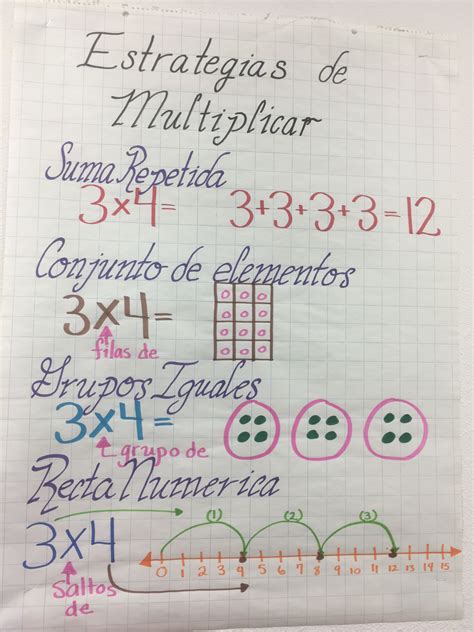 Estrategias de
Multiplicar
Suma Repetida
3x4= 3+3+3+3=12
Conjunto de elementos
3x4=
filas de
Grupos Iguales
3x4=
grupo de
Recta Numerica
3x4 (1) (2) (3)
0 1 2 3 4 5 6 7 8 9 10 11 12 13 14 15
Saltos
de